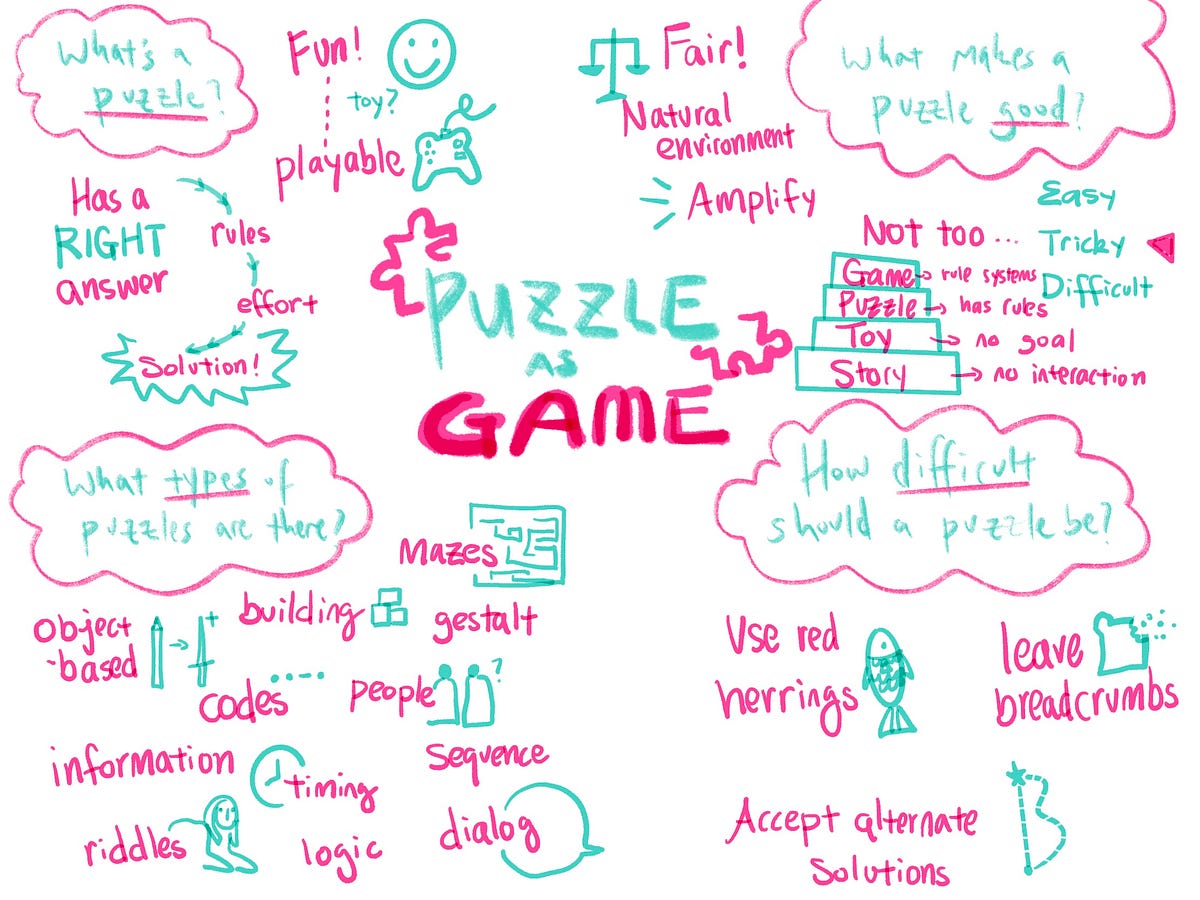 What's a
puzzle?
Fun!
toy?
playable
Has a
RIGHT
answer
rules
effort
Solution!
Fair!
Natural
environment
Amplify
What makes a
puzzle good?
Not too ...
Easy
Tricky
Difficult
Game → rule systems
Puzzle → has rules
Toy → no goal
Story → no interaction
PUZZLE
AS
GAME
What types of
puzzles are there?
Mazes
object
-based
building
gestalt
codes
people
?
information
timing
Sequence
riddles
logic
dialog
How difficult
should a puzzle be?
Use red
herrings
leave
breadcrumbs
Accept alternate
Solutions
B